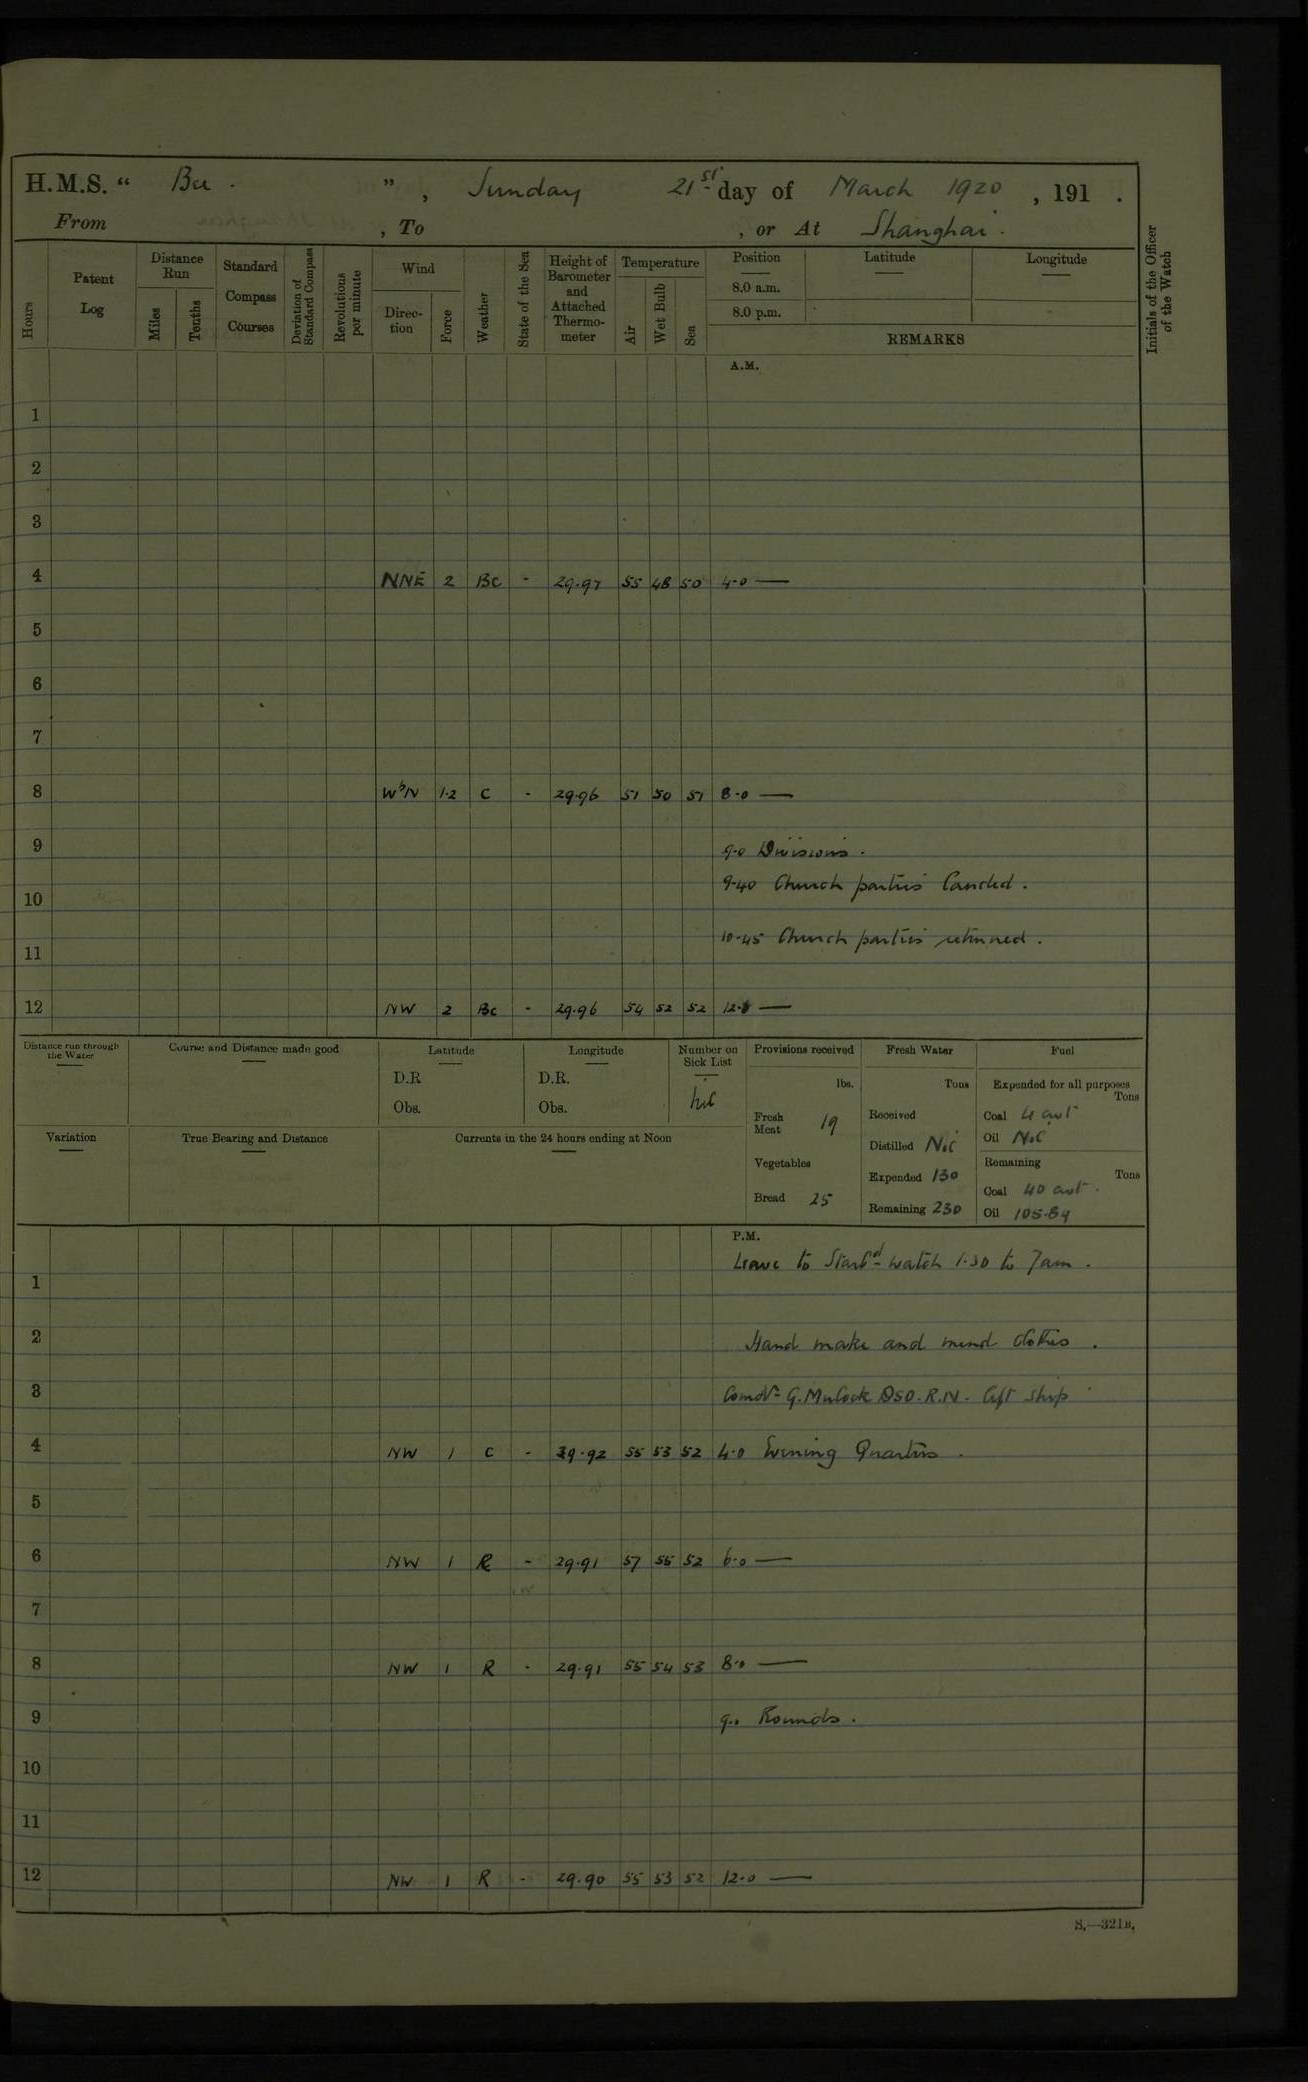 H.M.S. “ Bee . ” , Sunday 21st day of March 1920 , 191 .
From , To , or At Shanghai .
Hours
Patent Log
Distance Run
Miles
Tenths
Standard Compass Courses
Deviation of Standard Compass
Revolutions per minute
Wind
Direction
Force
Weather
State of the Sea
Height of Barometer and Attached Thermometer
Temperature
Air
Wet Bulb
Sea
Position
8.0 a.m.
8.0 p.m.
Latitude
Longitude
REMARKS
Initials of the Officer of the Watch
A.M.
1
2
3
4 NNE 2 Bc - 29.97 55 48 50 4.0 —
5
6
7
8 WbN 1.2 C - 29.96 51 50 51 8.0 —
9 9.0 Divisions .
9.40 Church parties landed .
10
10.45 Church parties returned .
11
12 NW 2 Bc - 29.96 54 52 52 12.0 —
Distance run through the Water
Course and Distance made good
Latitude
D.R
Obs.
Longitude
D.R.
Obs.
Number on Sick List
Nil
Provisions received
lbs.
Fresh Meat 19
Vegetables
Bread 25
Fresh Water
Tons
Received
Distilled Nil
Expended 130
Remaining 230
Fuel
Expended for all purposes
Tons
Coal 4 cwt
Oil Nil
Remaining
Tons
Coal 40 cwt .
Oil 105.84
Variation
True Bearing and Distance
Currents in the 24 hours ending at Noon
P.M.
Leave to Starbd watch 1.30 to 7am .
1
2 Hand make and mend clothes .
3 Comdr G. Mulock DSO. R.N. left ship
4 NW 1 C - 29.92 55 53 52 4.0 Evening Quarters .
5
6 NW 1 R - 29.91 57 55 52 6.0 —
7
8 NW 1 R - 29.91 55 54 53 8.0 —
9 9.0 Rounds .
10
11
12 NW 1 R - 29.90 55 53 52 12.0 —
S.—321B.